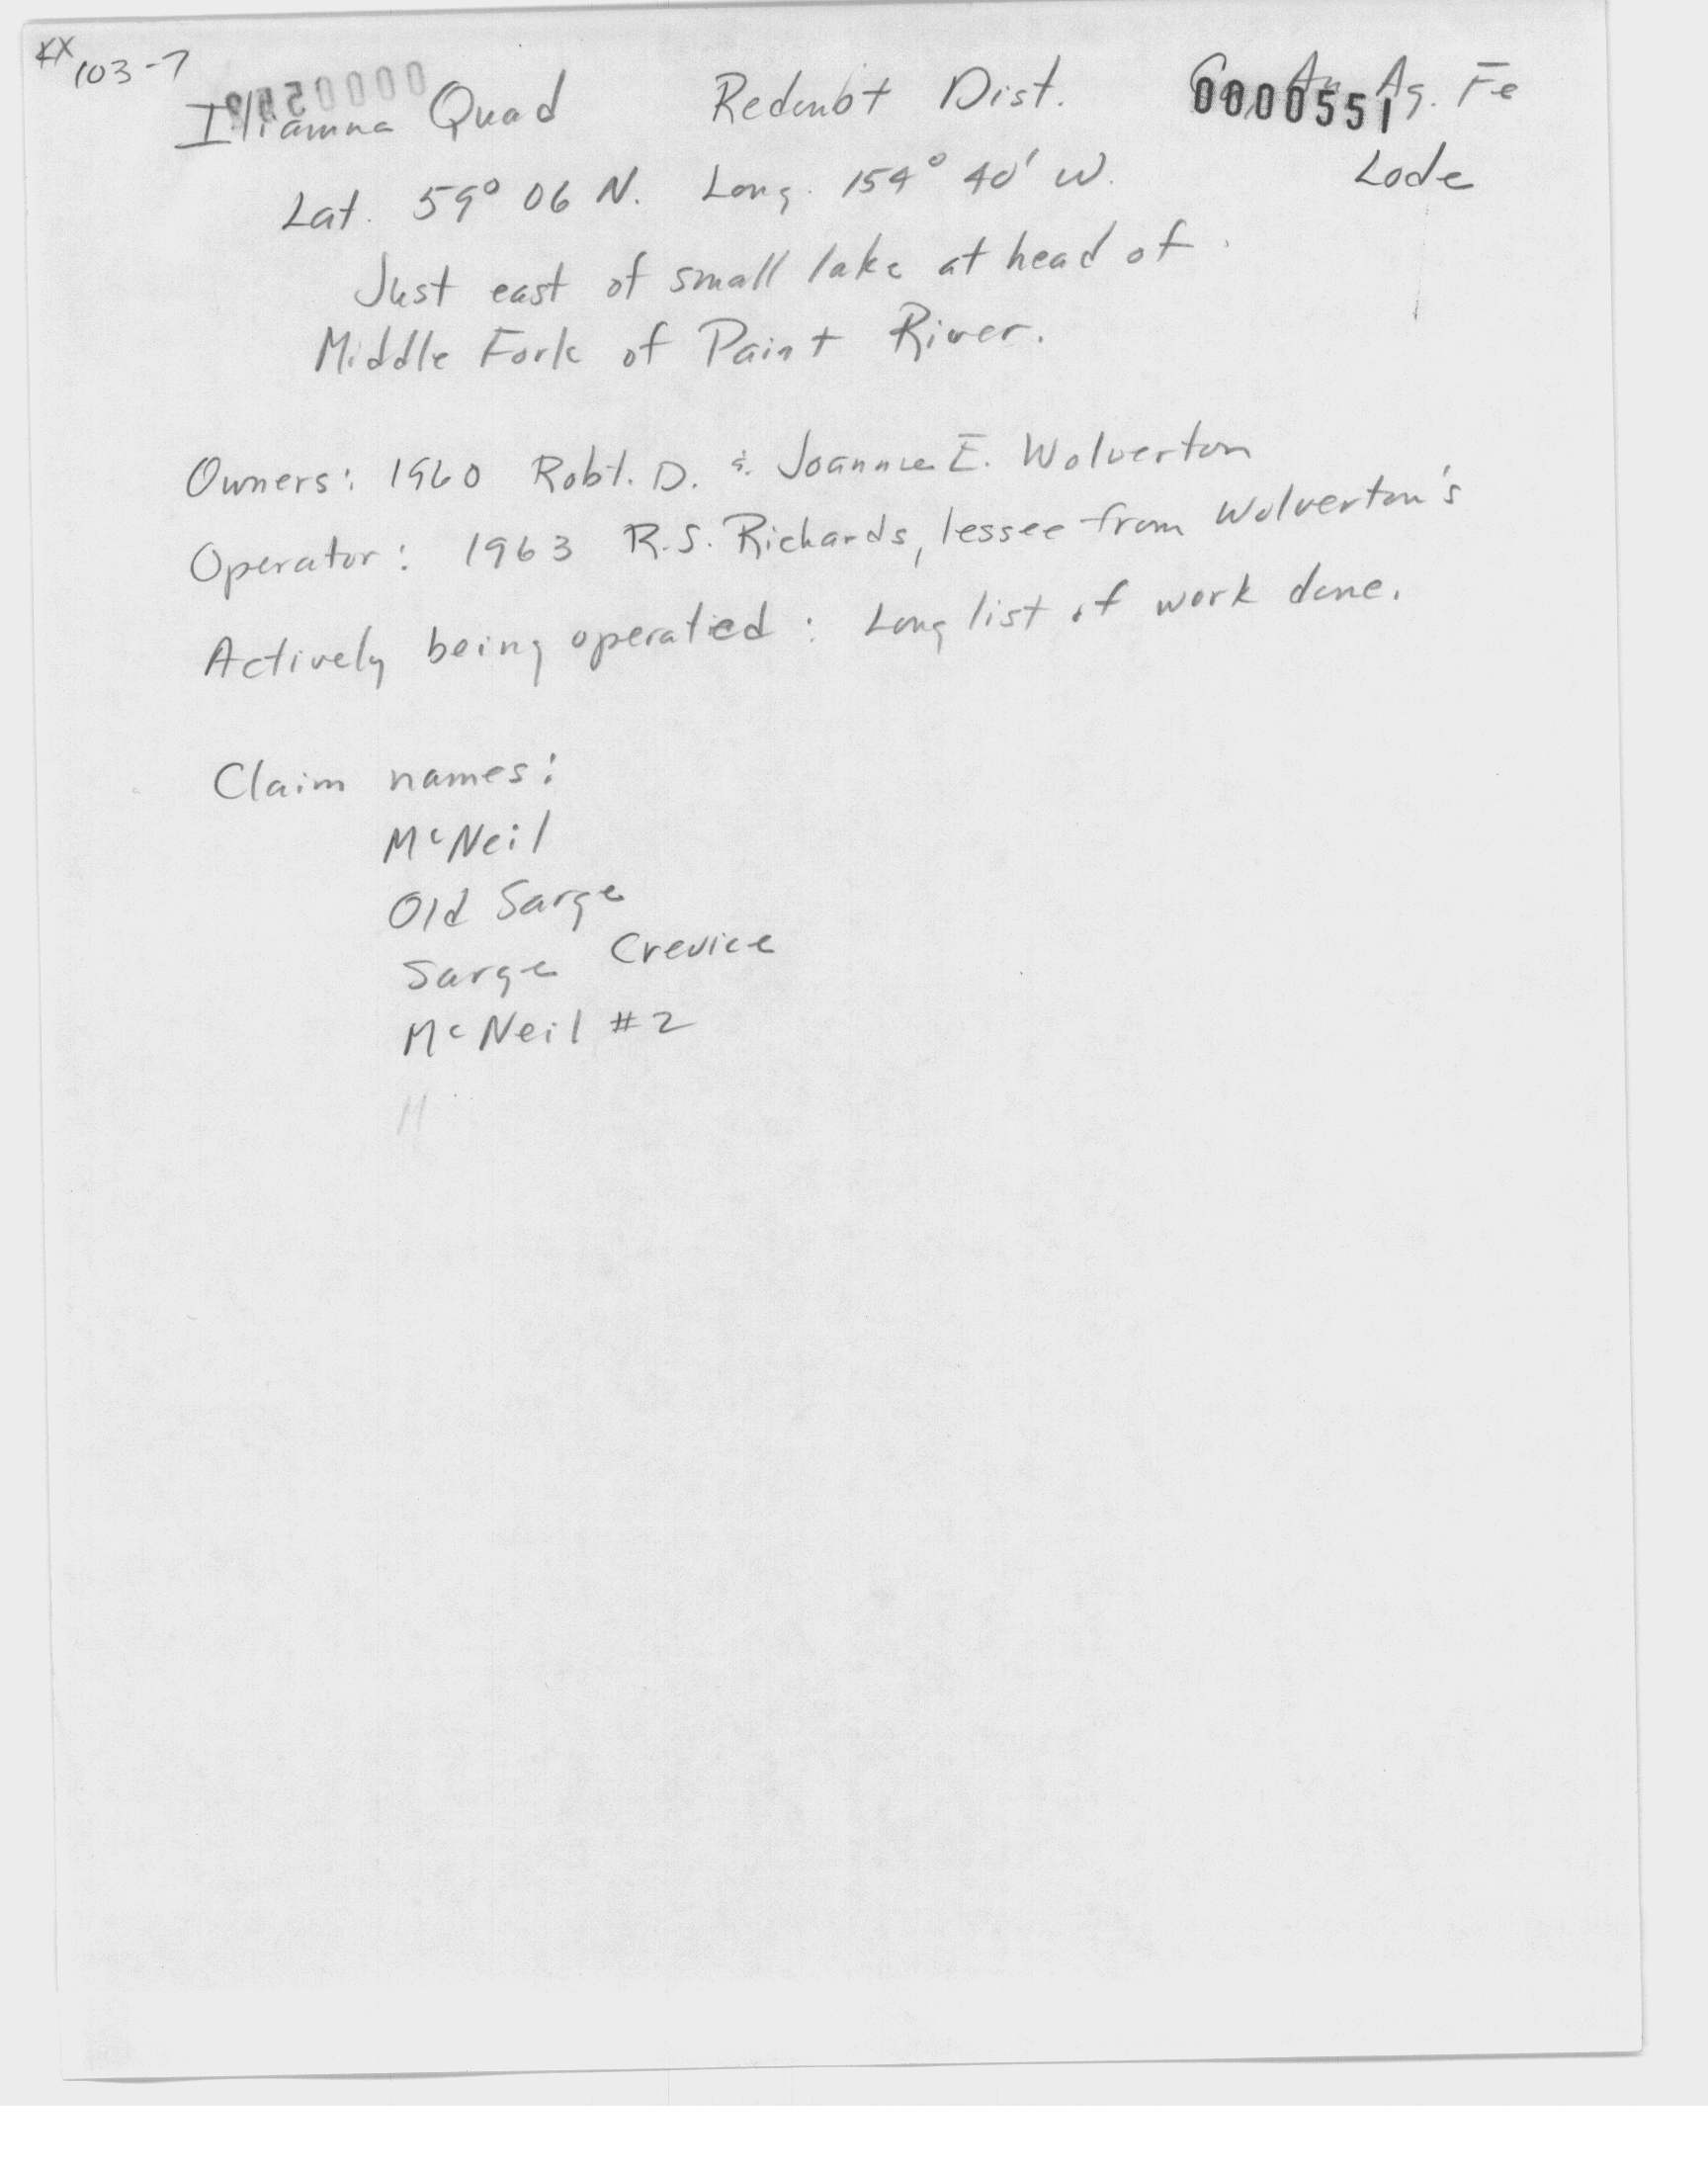 KX 103-7
Iliamna Quad Redoubt Dist. Au Ag. Fe
0000551
Lode
Lat. 59° 06 N. Long. 154° 40' W.
Just east of small lake at head of
Middle Fork of Paint River.
Owners: 1960 Robt. D. &. Joannie E. Wolverton
Operator: 1963 R.S. Richards, lessee from Wolverton's
Actively being operatied: Long list of work done.
Claim names:
McNeil
Old Sarge
Sarge Crevice
McNeil #2